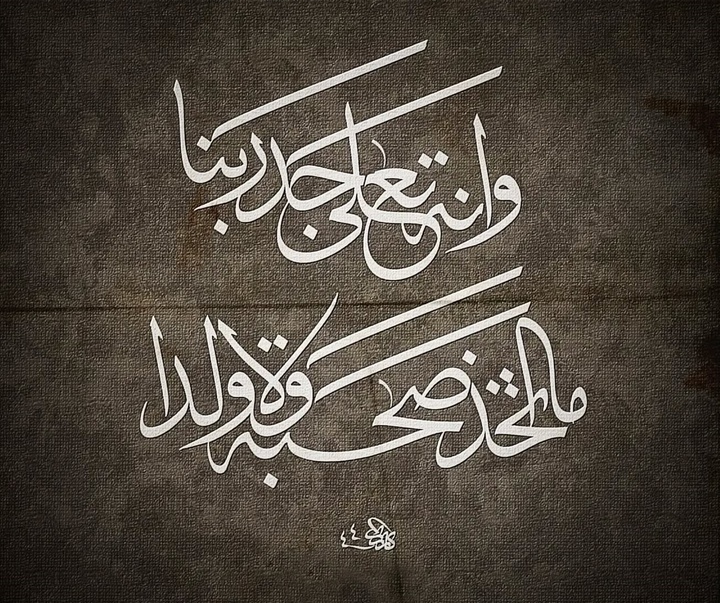 وانه تعلى جد ربنا
ما اتخذ صحبة ولا ولدا